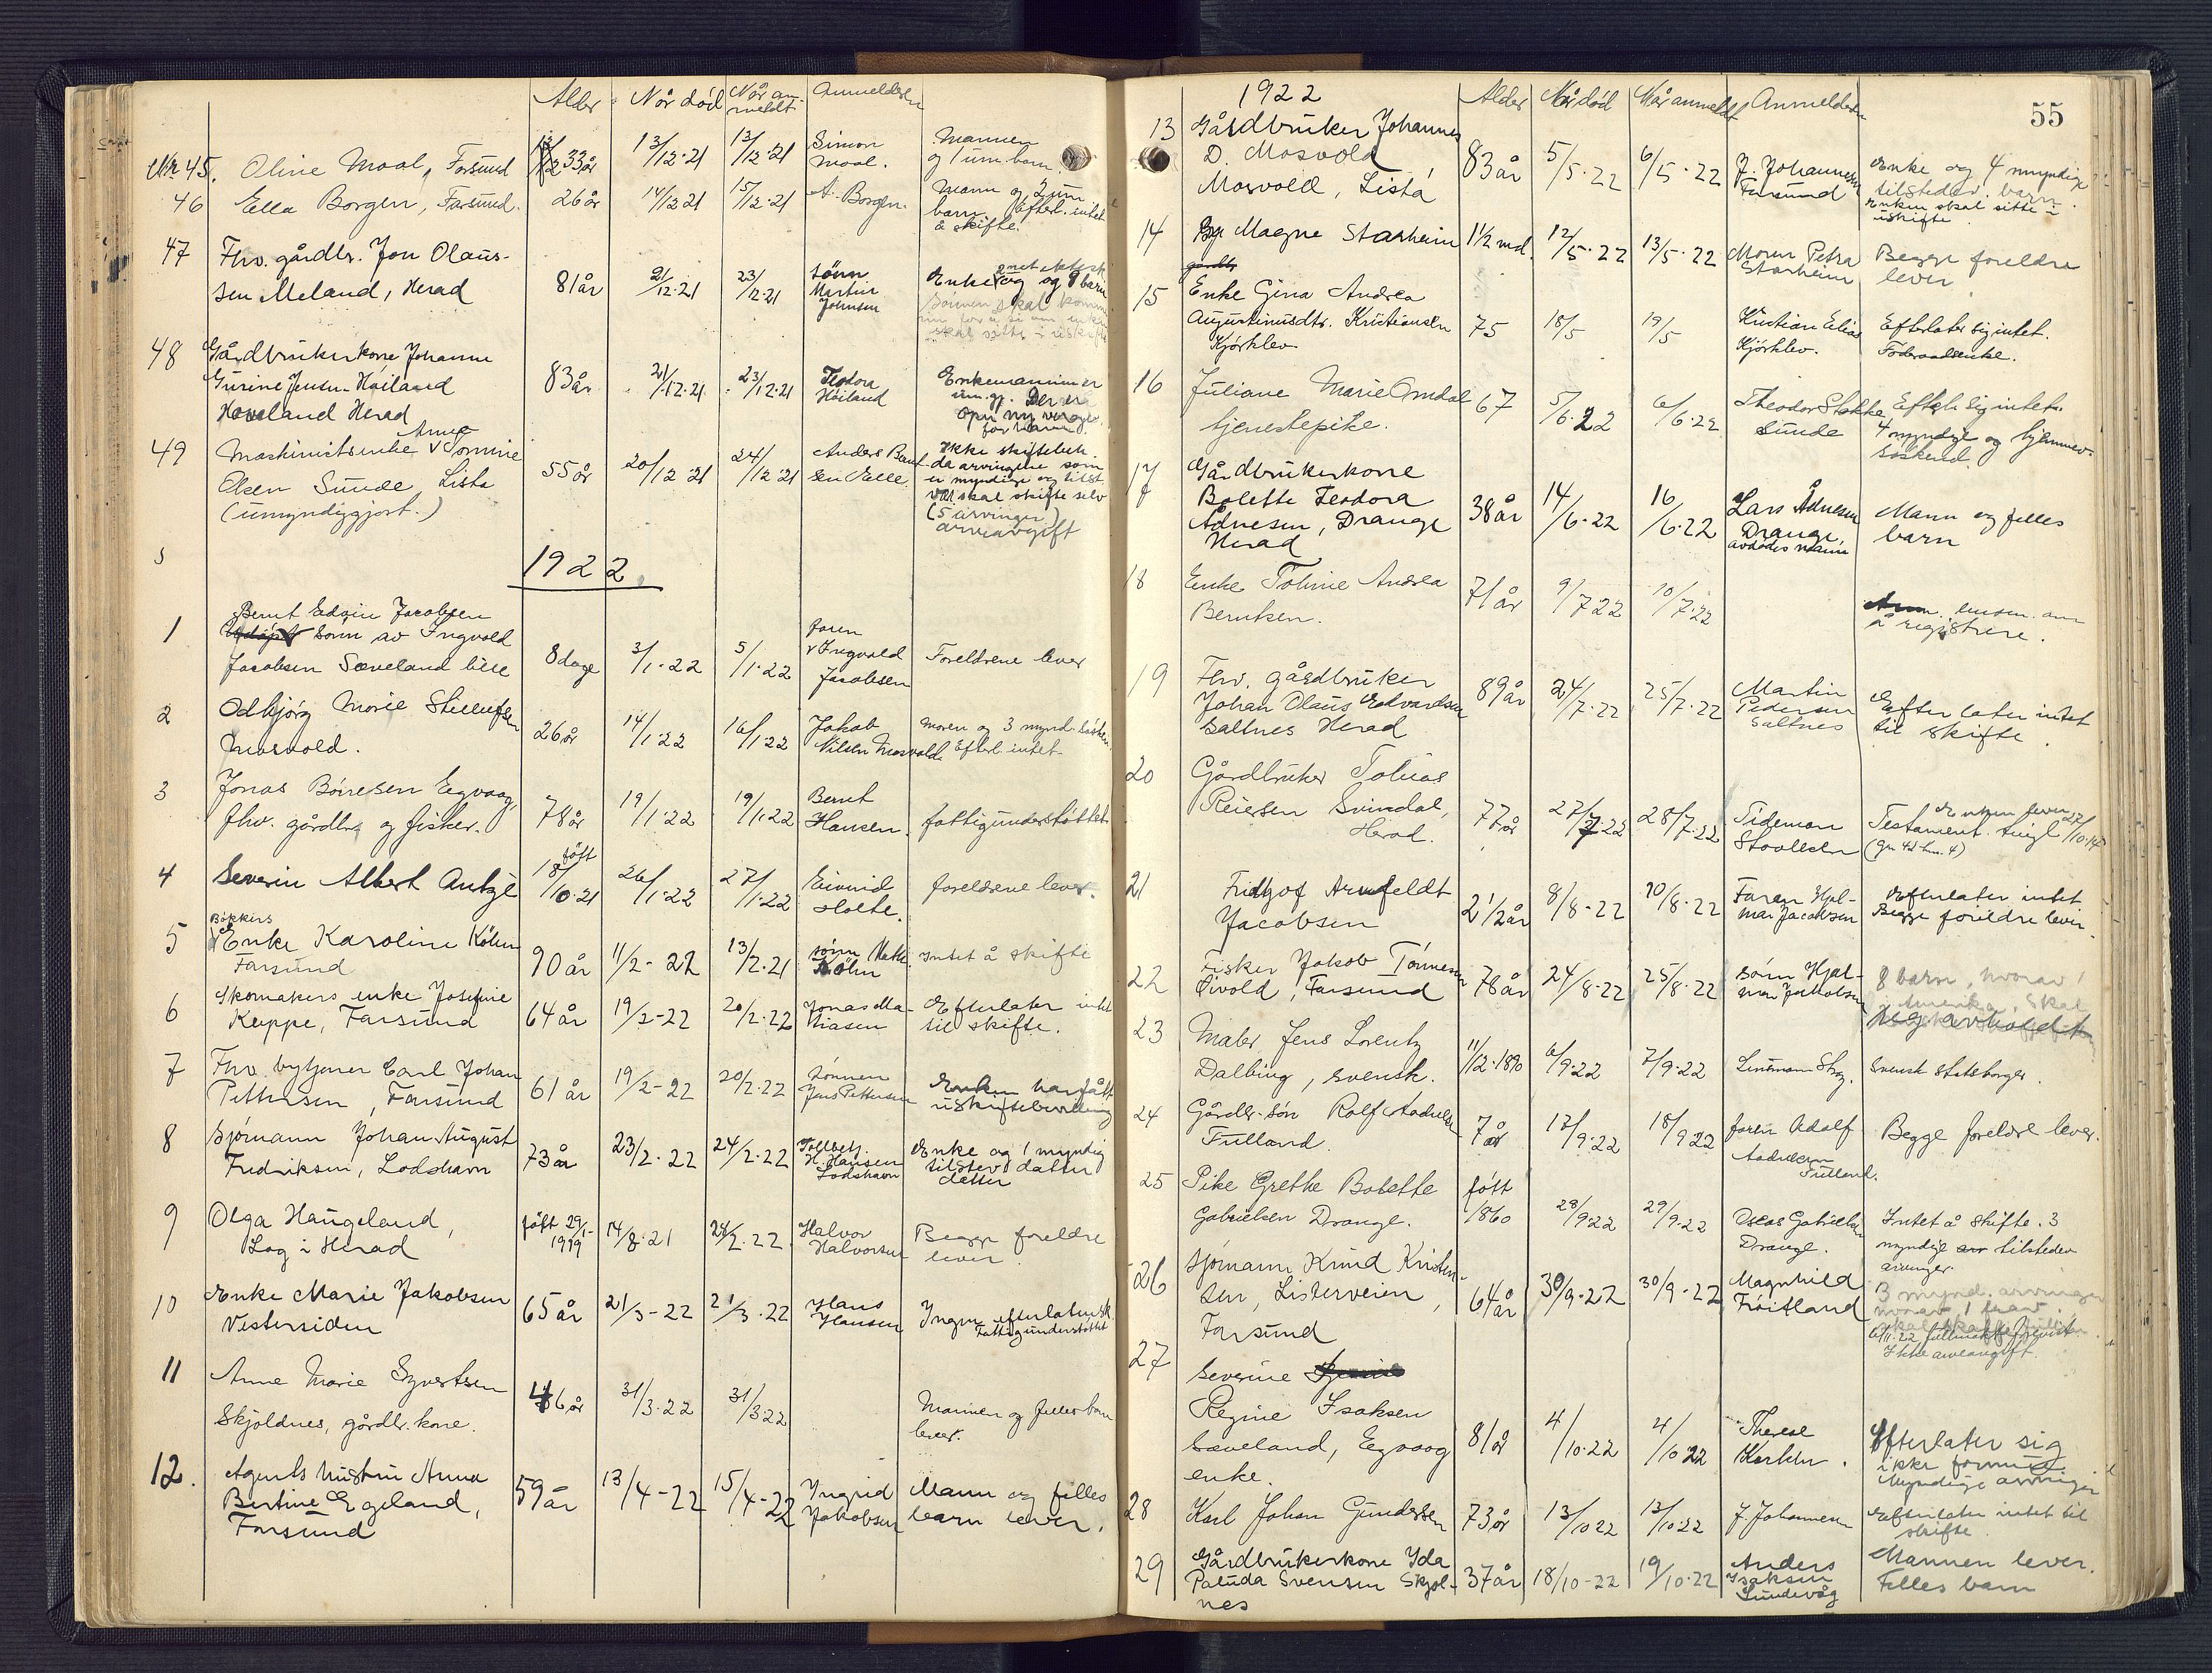 Alder Når død Når an-
meldt Anmelderen
Nr 45. Oline Moal, Farsund 33 år 13/12·21 13/12·21 Simon
Moal. Mannen
og 1 um. barn
46 Ella Borgen, Farsund. 26 år 14/12 21 15/12·21 A. Borgen. Mann og 2 um.
barn. Efterl. intet
å skifte.
47 Fhv. gårdbr. Jon Olaus-
sen Meland, Herad 81 år 21/12·21 23/12·21 sønn
Martin
Johnsen Enke og 9 barn
Sønnen skal komme
skal sitte i uskifte
48 Gårdbrukerkone Johanne
Gurine Jensen Høiland
Haveland Herad 83 år 21/12·21 23/12·21 Teodora
Høiland Enkemannen er
um.gj. Der er
opn. ny verge
for ham.
49 Maskinistenke Anne Tomine
Olsen Sunde Lista
(umyndiggjort.) 55 år 20/12 21 24/12 21 Anders Bernt-
sen Ikke skiftebeh.
da arvingene som
er myndige og tilst.
skal skifte selv
(5 arvinger)
arveavgift
1922
1 Bernt Edvin Jacobsen
sønn av Ingvold
Jacobsen Sæveland lille 8 dage 3/1·22 5/1·22 faren
Ingvold
Jacobsen Foreldrene lever
2 Odbjørg Marie Steffensen
Mosvold. 26 år 14/1·22 16/1 22 Jakob
Nilsen Mosvold. Moren og 3 mynd. søsken
Efterl. intet
3 Jonas Børresen Egvaag,
fhv. gårdbr. og fisker. 78 år 19/1·22 19/1·22 Bernt
Hansen. fattigunderstøttet
4 Severin Albert Antzé født
18/10·21 26/1·22 27/1·22 Eivind
Holte. foreldrene lever.
5 Bøkkers
Enke Karoline Köhn
Farsund 90 år 11/2-22 13/2·21 sønn
Köhn Intet å skifte
6 Skomakers enke Josefine
Keppe, Farsund 64 år 19/2-22 20/2·22 Jonas Ma-
thiasen Efterlater intet
til skifte.
7 Fhv. bytjener Carl Johan
Pettersen, Farsund 61 år 19/2-22 20/2·22 Sønnen
Jens Pettersen Enken har fått
uskiftebevilling
8 Sjømann Johan August
Fredriksen, Lodshavn 73 år 23/2·22 24/2·22 Tollbetj.
H. Hansen
Lodshavn Enke og 1 myndig
tilstedv. datter
datter
9 Olga Haugeland,
Log i Herad født 29/1-
1919 14/8·21 28/2·22 Halvor
Halvorsen Begge foreldre
lever.
10 Enke Marie Jakobsen
Vestersiden 65 år 21/3-22 21/3·22 Hans
Hansen Ingen efterlatensk.
Fattigunderstøttet
11 Anne Marie Syvertsen
Skjoldnes, gårdbr. kone. 46 år 31/3·22 31/3 22 Mannen og felles barn
lever.
12. Agents hustru Anna
Bertine Egeland,
Farsund 59 år 13/4-22 15/4-22 Ingrid
Jakobsen Mann og felles
barn lever.
55
1922 Alder Når død Når anmeldt Anmelderen
13 Gårdbruker Johannes
D. Mosvold
Mosvold, Lista 83 år 5/5·22 6/5·22 J. Johannesen
Farsund Enke og 4 myndige
tilstedev. barn.
Enken skal sitte i
uskifte
14 Magne Starheim 1 1/2 md. 12/5·22 13/5·22 Moren Petra
Starheim Begge foreldre
lever
15 Enke Gina Andrea
Augustinusdtr. Kristiansen
Kjørklev. 75 18/5 19/5 Kristian Elias
Kjørklev. Efterlater sig intet.
Føderaadsenke.
16 Juliane Marie Omdal
tjenestepike. 67 5/6·22 6/6·22 Theodor Stokke
Sunde Efterl. sig intet.
4 myndige og hjemmev.
søskend.
17 Gårdbrukerkone
Bolette Teodora
Ådnesen, Drange
Herad 38 år 14/6·22 16/6·22 Lars Ådnesen
Drange,
avdødes mann Mann og felles
barn
18 Enke Toline Andrea
Berntsen. 71 år 9/7 22 10/7·22 anm. om
å registrere.
19 Fhv. gårdbruker
Johan Olaus Edvardsen
Saltnes Herad 89 år 24/7·22 25/7·22 Martin
Pedersen
Saltnes Efterlater intet
til skifte.
20 Gårdbruker Tobias
Reiersen Svindal,
Herad. 77 år 27/7 22 28/7·22 Tideman
Stoveland Enken lever
Testament. tingl 27/10·14
21 Fridtjof Arnfeldt
Jacobsen 2 1/2 år 8/8-22 10/8·22 Faren Hjal-
mar Jacobsen Efterlater intet
Begge foreldre lever.
22 Fisker Jakob Tønnesen
Øivold, Farsund 78 år 24/8·22 25/8·22 Sønn Hjal-
mar Jakobsen 8 barn, hvorav 1
i Amerika. Skal
reg. avholdt
23 Maler Jens Lorentz
Dalbing, svensk. 11/12·1890 6/9·22 7/9·22 Linsmann Stray. Svensk statsborger.
24 Gårdbr. søn Rolf Aadnesen
Fulland. 7 år 17/9·22 18/9 22 faren Adolf
Aadnesen
Fulland. Begge foreldre lever.
25 Pike Grethe Bolette
Gabrielsen Drange. født
1860 28/9·22 29/9·22 Oscar Gabrielsen
Drange. Intet å skifte. 3
myndige tilstedev.
arvinger.
26 Sjømann Knud Kristen-
sen, Listerveien,
Farsund 64 år 30/9·22 30/9-22 Magnhild
Frøitland 3 mynd. arvinger
hvorav 1 frav.
6/11·22 fullmakt forevist
Ikke arveavgift.
27 Severine
Regine Isaksen
Sæveland, Egvaag
enke. 81 år 4/10·22 4/10 22 Therese
Karlsen. Efterlater sig
ikke formue
Myndige arvinger
28 Karl Johan Gundersen 73 år 13/10 22 13/10·22 J. Johannesen Efterlater intet til
skifte
29 Gårdbrukerkone Ida
Paluda Svensen Skjol-
nes 37 år 18/10-22 19/10·22 Anders
Isaksen
Lundevåg Mannen lever.
Felles barn